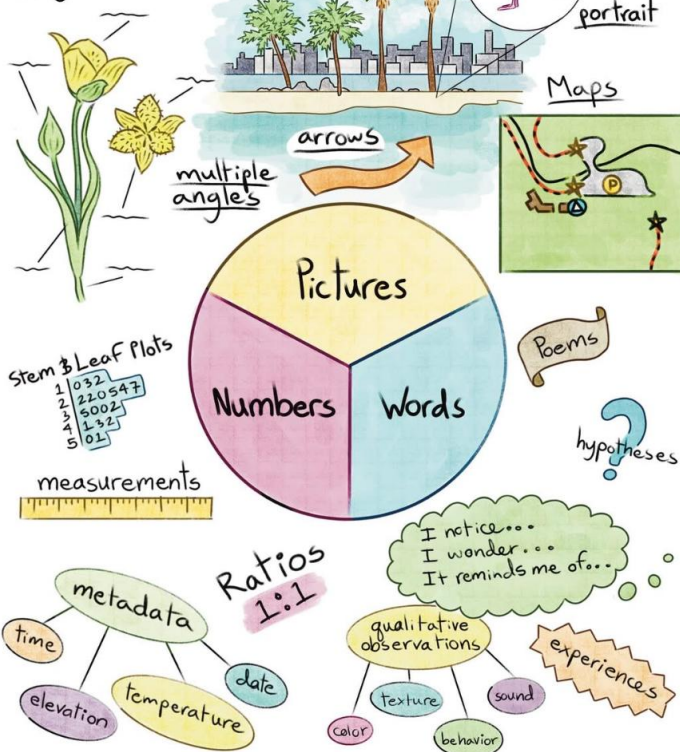 portrait
Maps
arrows
multiple
angles
P
Pictures
Numbers
Words
Poems
hypotheses
?
Stem & Leaf Plots
1 | 032
2 | 220547
3 | 5002
4 | 132
5 | 01
measurements
Ratios
1:1
I notice...
I wonder...
It reminds me of...
metadata
time
elevation
temperature
date
qualitative
observations
color
texture
behavior
sound
experiences